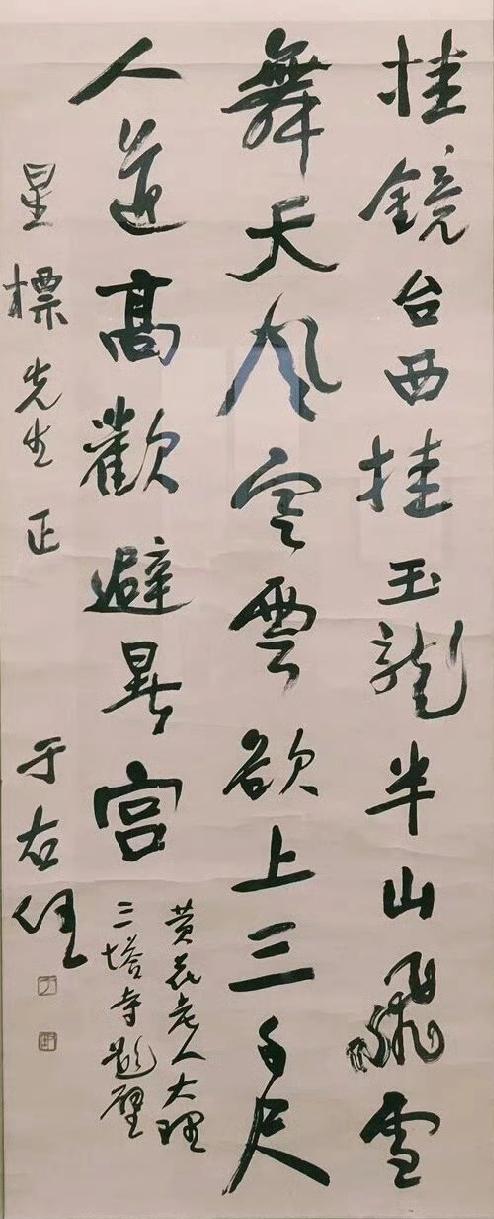 挂鏡台西挂玉龍半山飛雪
舞天風寒雲欲上三千尺
人道高歡避暑宮
黄花老人大理
三塔寺題壁
星標先生正 于右任